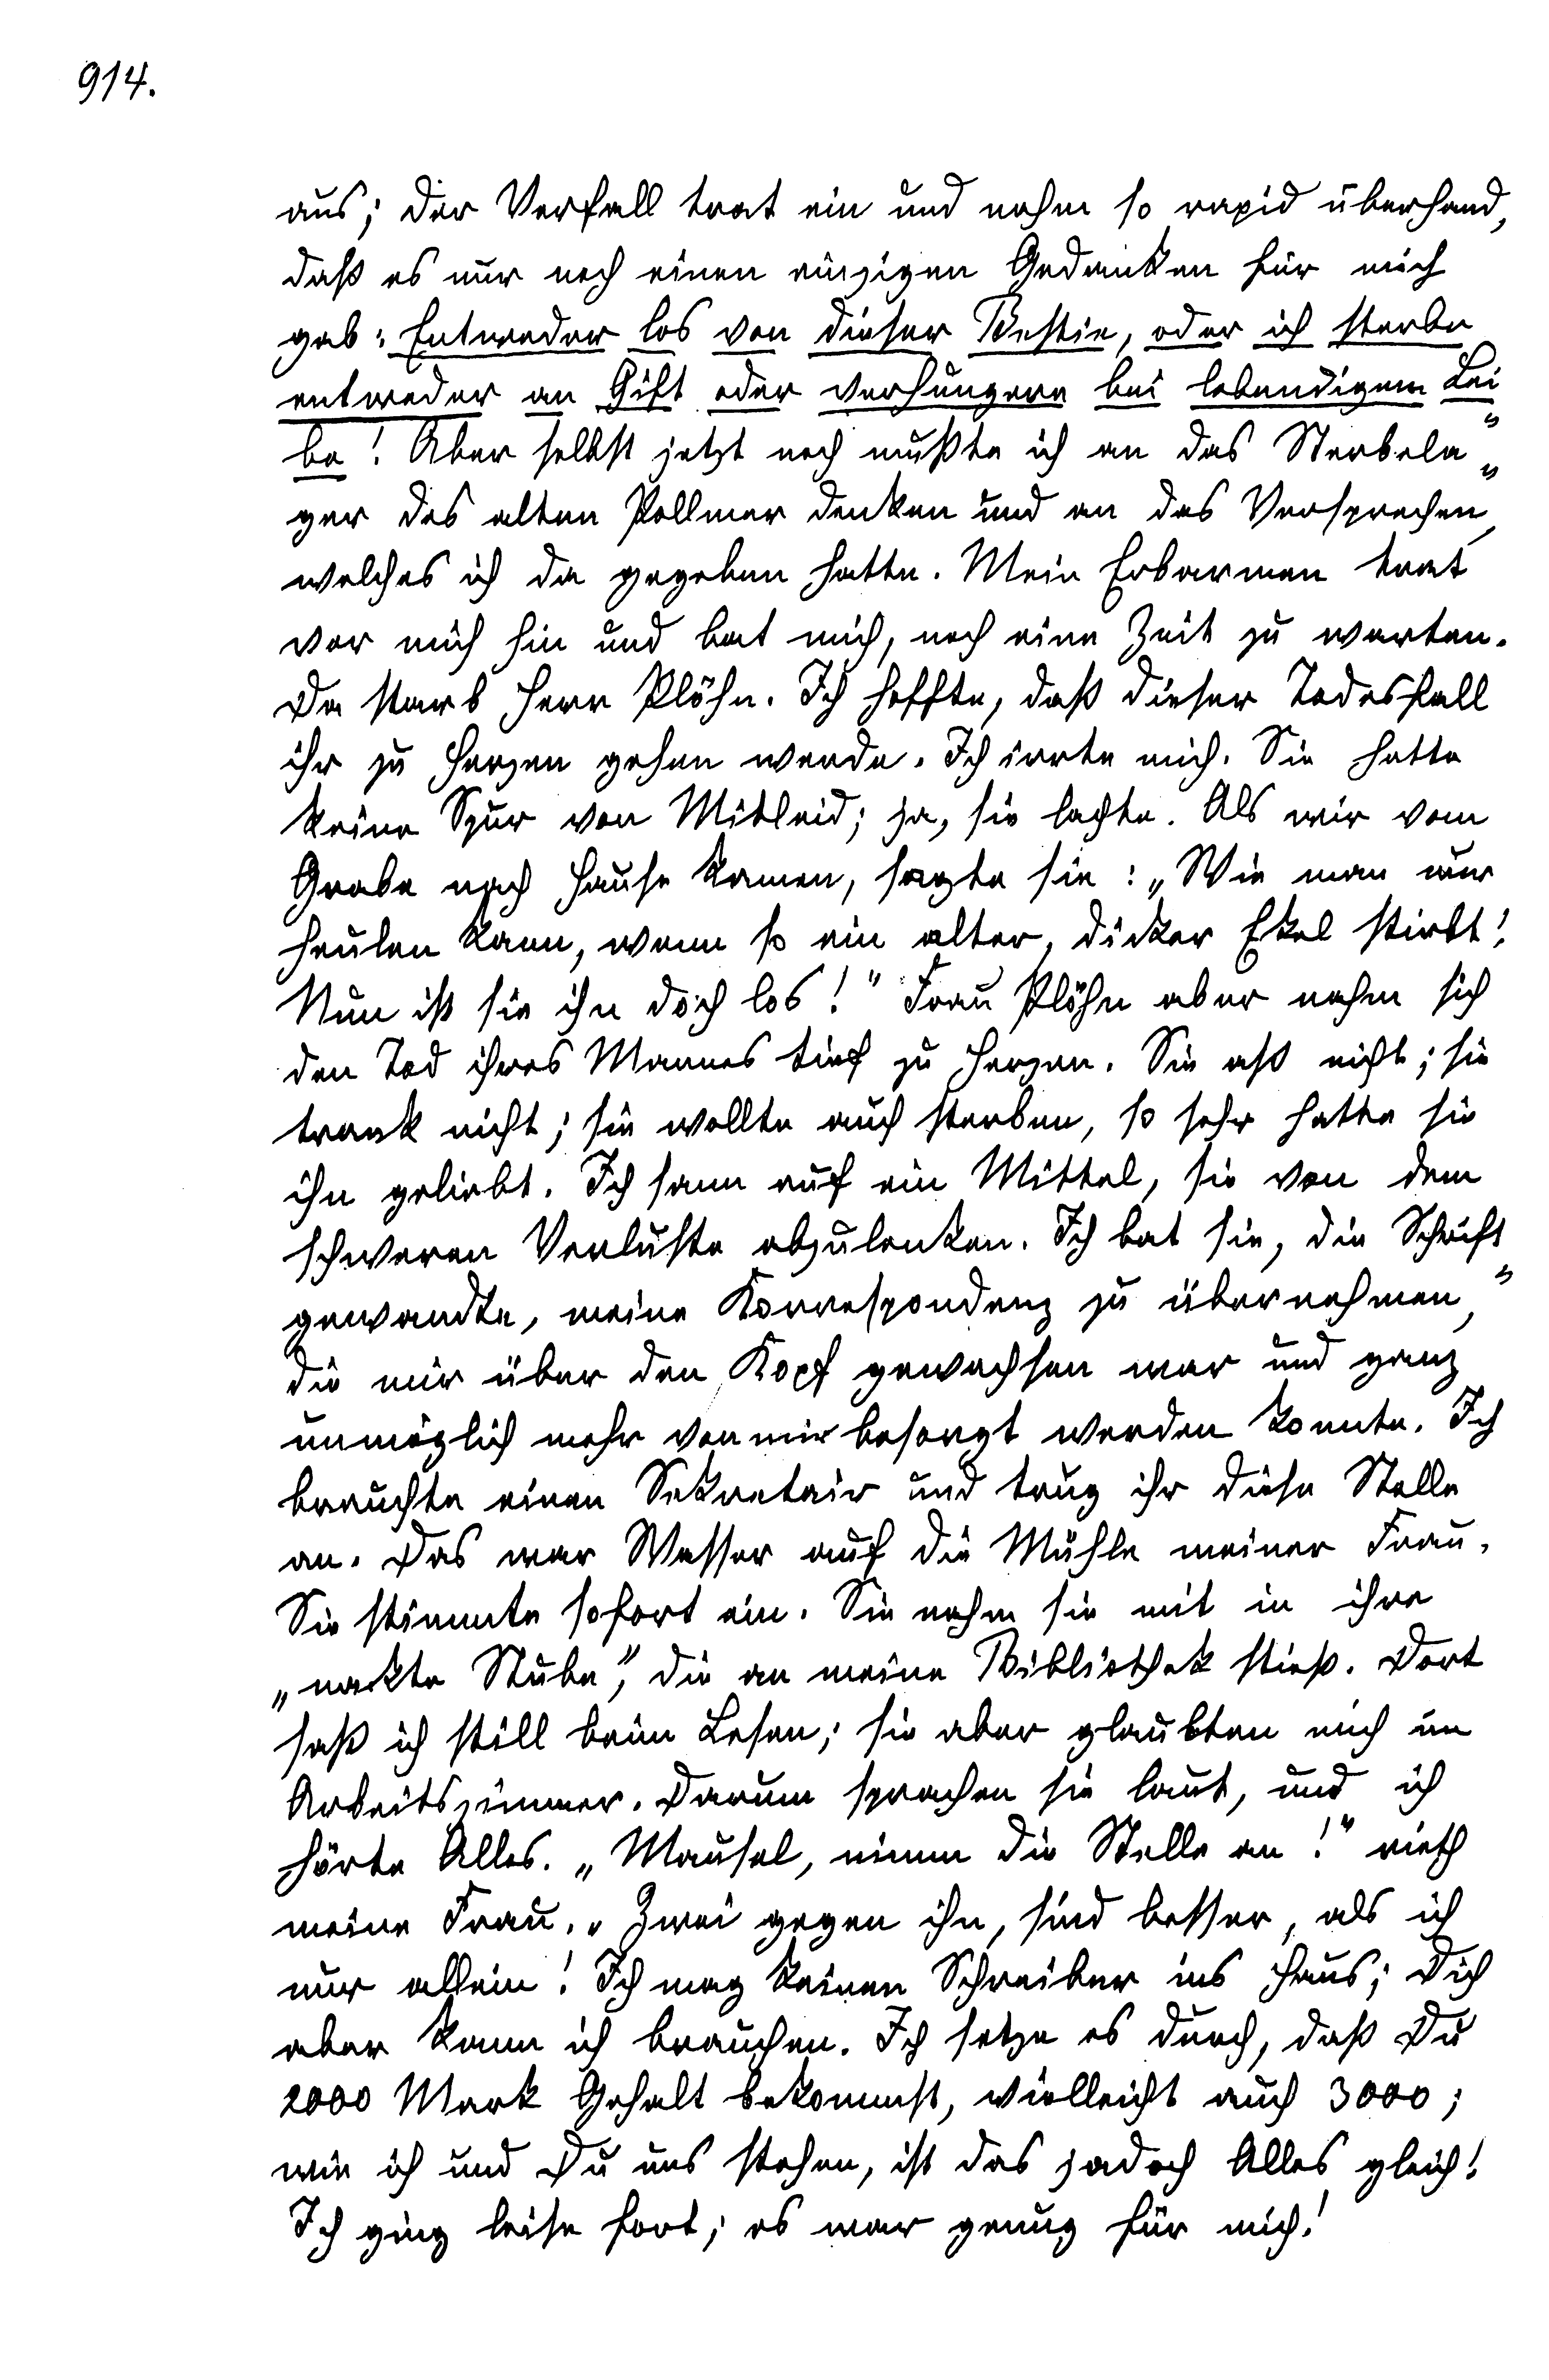 914.
aus; der Verfall trat ein und nahm so rapid überhand,
daß es nur noch einen einzigen Gedanken für mich
gab: Entweder los von dieser Bestie, oder ich sterbe
entweder an Gift oder verhungere bei lebendigem Lei„
be! Aber selbst jetzt noch mußte ich an das Sterbela„
ger des alten Pollmer denken und an das Versprechen,
welches ich da gegeben hatte. Mein Erbarmen trat
vor mich hin und bat mich, noch eine Zeit zu warten.
Da starb Herr Plöhn. Ich hoffte, daß dieser Todesfall
ihr zu Herzen gehen werde. Ich irrte mich. Sie hatte
keine Spur von Mitleid; ja, sie lachte. Als wir vom
Grabe nach Hause kamen, sagte sie: „Wie man nur
heulen kann, wenn so ein alter, dicker Ekel stirbt!
Nun ist sie ihn doch los!" Frau Plöhn aber nahm sich
den Tod ihres Mannes tief zu Herzen. Sie aß nicht; sie
trank nicht; sie wollte auch sterben, so sehr hatte sie
ihn geliebt. Ich sann auf ein Mittel, sie von dem
schweren Verluste abzulenken. Ich bat sie, die Schrift„
gewandte, meine Korrespondenz zu übernehmen,
die mir über den Kopf gewachsen war und ganz
unmöglich mehr von mir besorgt werden konnte. Ich
brauchte einen Sekretair und trug ihr diese Stelle
an. Das war Wasser auf die Mühle meiner Frau.
Sie stimmte sofort ein. Sie nahm sie mit in ihre
„nackte Stube", die an meine Bibliothek stieß. Dort
saß ich still beim Lesen; sie aber glaubten mich im
Arbeitszimmer. Darum sprachen sie laut, und ich
hörte Alles. „Mausel, nimm die Stelle an!" rieth
meine Frau. „Zwei gegen ihn, sind besser, als ich
nur allein! Ich mag keinen Schreiber ins Haus; Dich
aber kann ich brauchen. Ich setze es durch, daß Du
2000 Mark Gehalt bekommst, vielleicht auch 3000;
wie ich und Du uns stehen, ist das jadoch Alles gleich!
Ich ging leise fort; es war genug für mich!